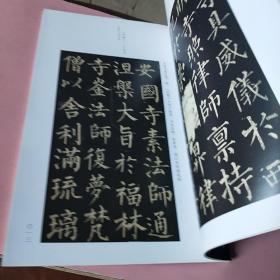 具威儀於
寺照律師禀持
安國寺素法師通
涅槃大旨於福林
寺崟法師復夢梵
僧以舍利滿琉璃